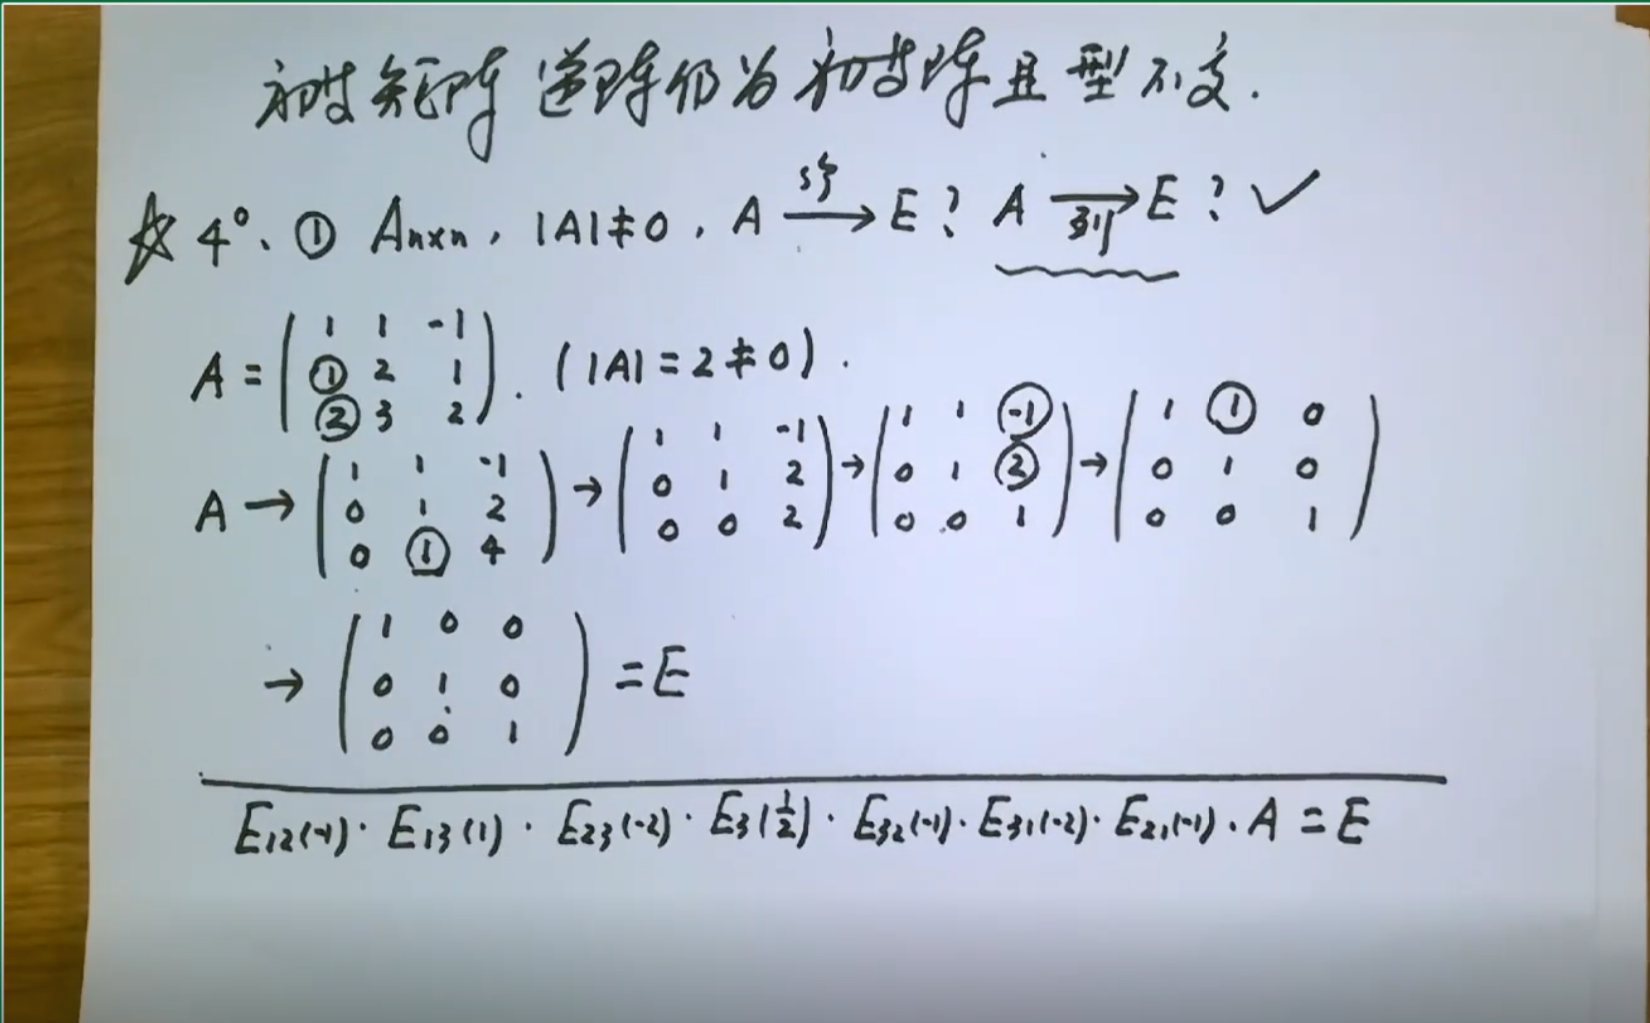 初等矩阵逆阵仍为初等阵且型不变.
☆ 4°、① Aₙₓₙ, |A|≠0, A —行→ E? A —列→ E? ✓
A = ( 1 1 -1 ; ① 2 1 ; ② 3 2 ). (|A| = 2 ≠ 0).
A → ( 1 1 -1 ; 0 1 2 ; 0 ① 4 ) → ( 1 1 -1 ; 0 1 2 ; 0 0 2 ) → ( 1 1 (-1) ; 0 1 ② ; 0 0 1 ) → ( 1 ① 0 ; 0 1 0 ; 0 0 1 )
→ ( 1 0 0 ; 0 1 0 ; 0 0 1 ) = E
E₁₂(-1)· E₁₃(1) · E₂₃(-2)· E₃(1/2)· E₃₂(-1)· E₃₁(-2)· E₂₁(-1)· A = E